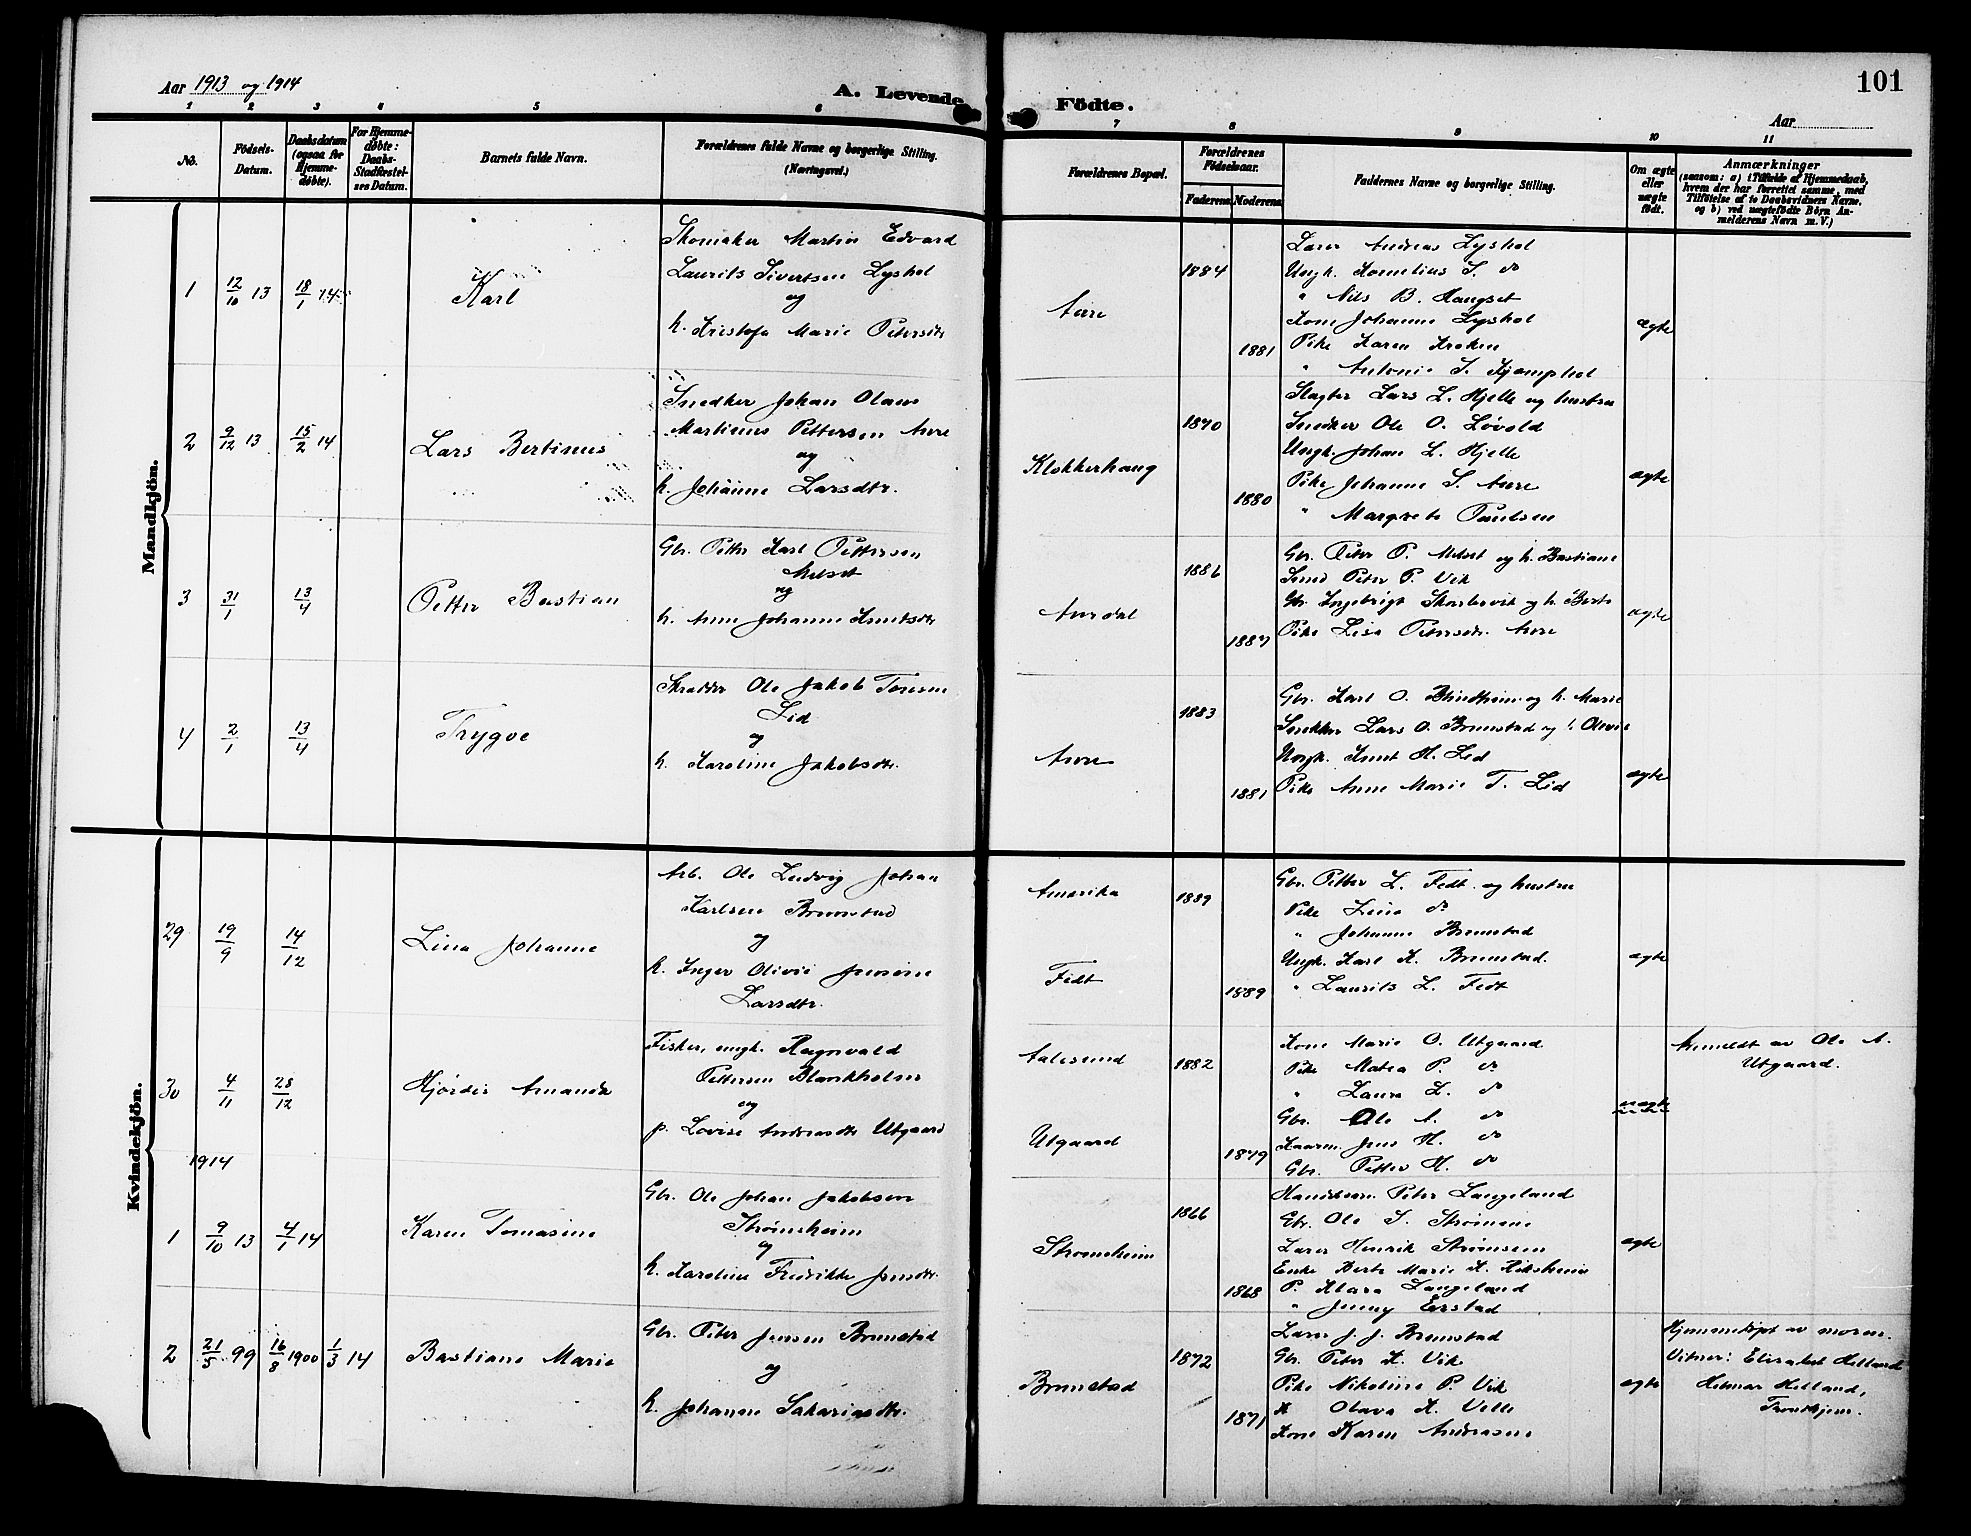 Aar 1913 og 1914
A. Levende Födte.
101
Aar
1 2 3 4 5 6 7 8 9 10 11
No.
Födsels-Datum.
Daabsdatum (ogsaa for Hjemme-døbte).
For Hjemme-døbte: Daabs-Stadfæstelses Datum.
Barnets fulde Navn.
Forældrenes fulde Navne og borgerlige Stilling. (Næringsvei.)
Forældrenes Bopæl.
Forældrenes Födselsaar.
Faderens
Moderens
Faddernes Navne og borgerlige Stilling.
Om ægte eller uægte født.
Anmærkninger
(saasom: a) i Tilfælde af Hjemmedaab, hvem der har forrettet samme, med Tilföielse af to Daabsvidners Navne, og b) ved uægtefödte Börn Anmelderens Navn m. V.)
Mandkjön.
1
12/10 13
18/1 14
Karl
Skomaker Martin Edvard
Laurits Sivertsen Lyshol
og
h. Kristofa Marie Petersdtr
Aure
1884
1881
Lærer Andreas Lyshol
Ungk. Kornelius S. do
" Nils B. Haugset
Kone Johanne Lyshol
Pike Karen Kroken
" Antonie S. Kjemphol
ægte
2
9/12 13
15/2 14
Lars Bertinus
Snedker Johan Olaus
Martinus Pettersen Aure
og
h. Johanne Larsdtr.
Klokkerhaug
1870
1880
Slagter Lars L. Hjelle og hustru
Snedker Ole O. Løvold
Ungk. Johan L. Hjelle
Pike Johanne S. Aure
" Margrete Paulsen
ægte
3
31/1
13/4
Petter Bastian
Gbr. Petter Karl Pettersen
Melset
og
h. Anne Johanne Knutsdtr
Aurdal
1886
1887
Gbr. Peter P. Melset og h. Bastiane
Smed Peter P. Vik
Gbr. Ingebrigt Skarbøvik og h. Berte
Pike Lisa Petersdr. Aure
ægte
4
2/1
13/4
Trygve
Skrædder Ole Jakob Toresen
Lid
og
h. Karoline Jakobsdtr.
Aure
1883
1881
Gbr. Karl O. Blindheim og h. Marie
Snekker Lars O. Brunstad og h. Olevie
Ungk. Knut H. Lid
Pike Anne Marie T. Lid
ægte
Kvindekjön.
29
19/9
14/12
Lina Johanne
Arb. Ole Ludvig Johan
Karlsen Brunstad
og
h. Inger Olivie Jensine
Larsdtr.
Amerika
Fedt
1889
1889
Gbr. Petter L. Fedt og hustru
Pike Lina do
" Johanne Brunstad
Ungk. Karl K. Brunstad.
" Laurits L. Fedt
ægte
30
4/11
28/12
Hjørdis Amanda
Fisker, ungk. Ragnvald
Pettersen Blankholm
og
p. Lovise Andreasdtr Utgaard
Aalesund
Utgaard
1882
1879
Kone Marie O. Utgaard
Pike Matea P. do
" Laura L. do
Gbr. Ole A. do
Kaarm. Jens H. do
Gbr. Petter H. do
uægte
Anmeldt av Ole A.
Utgaard.
1914
1
9/10 13
4/1 14
Karen Tomasine
Gbr. Ole Johan Jakobsen
Strømsheim
og
h. Karoline Fredrikke Jensdtr.
Strømsheim
1866
1868
Handelsm. Peter Langeland
Gbr. Ole J. Strømme
Lærer Henrik Strømsem
Enke Berte Marie K. Riksheim
P. Klara Langeland
" Jenny Erstad
ægte
2
21/5 99
16/8 1900
1/3 14
Bastiane Marie
Gbr. Peter Jensen Brunstad
og
h. Johanne Sakariasdtr.
Brunstad
1872
1871
Lærer J. J. Brunstad
Gbr. Peter K. Vik
Pike Nikoline P. Vik
" Olava K. Velle
Kone Karen Andreasen
ægte
Hjemmedøpt av moren.
Vitner: Elisabet Helland
Helmar Helland,
Trondhjem.